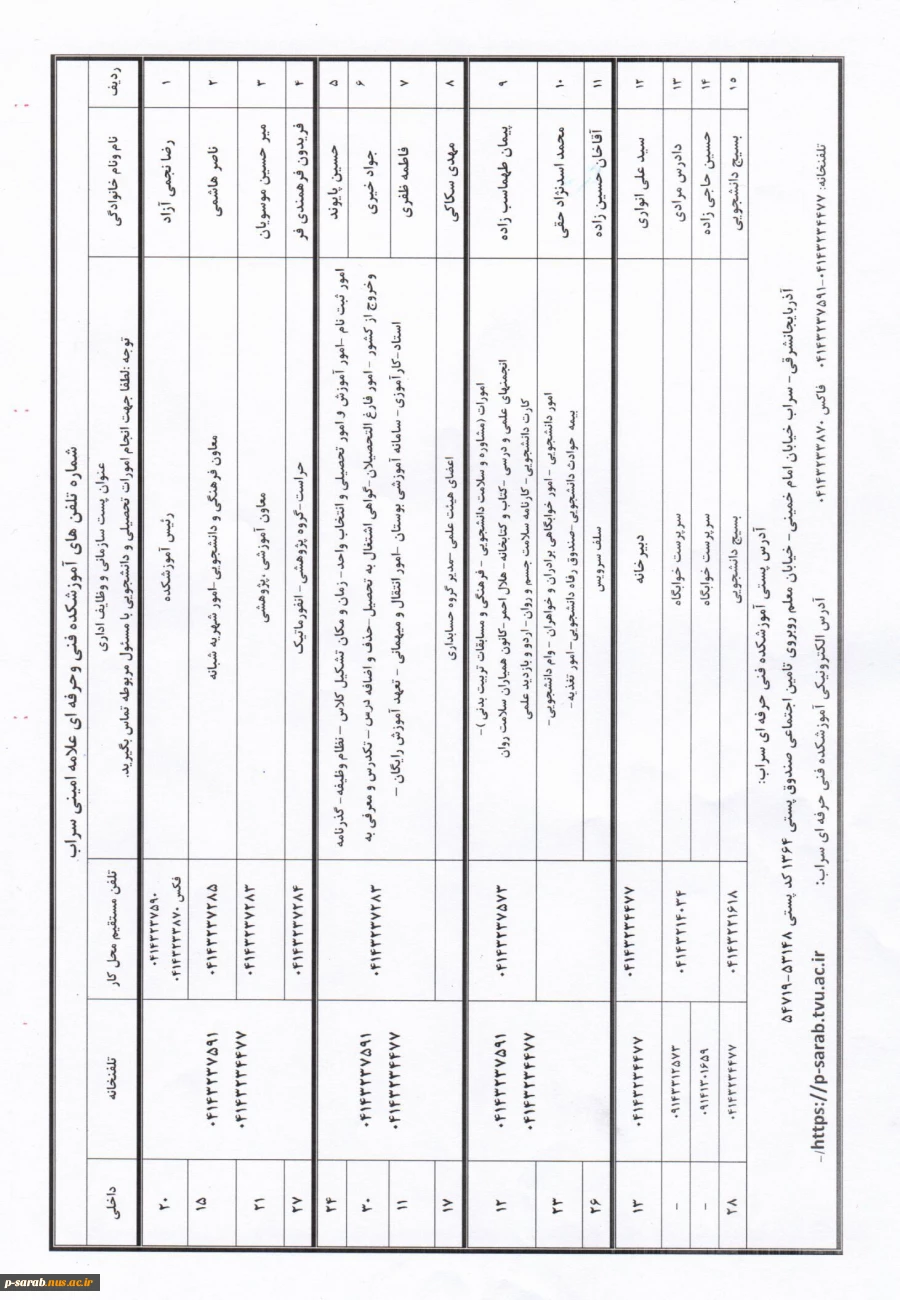 شماره تلفن های آموزشکده فنی وحرفه ای علامه امینی سراب
ردیف
نام ونام خانوادگی
عنوان پست سازمانی و وظایف اداری
توجه :لطفا جهت انجام امورات تحصیلی و دانشجویی با مسئول مربوطه تماس بگیرید.
تلفن مستقیم محل کار
تلفنخانه
داخلی
۱
رضا نجمی آزاد
رئیس آموزشکده
۰۴۱۴۳۲۳۷۵۹۰
فکس ۰۴۱۴۳۲۳۳۸۷۰
۲۰
۲
ناصر هاشمی
معاون فرهنگی و دانشجویی-امور شهریه شبانه
۰۴۱۴۳۲۳۷۲۸۵
۰۴۱۴۳۲۳۷۵۹۱
۰۴۱۴۳۲۳۴۴۷۷
۱۵
۳
میر حسین موسویان
معاون آموزشی ،پژوهشی
۰۴۱۴۳۲۳۷۲۸۳
۲۱
۴
فریدون فرهمندی فر
حراست-گروه پژوهشی - انفورماتیک
۰۴۱۴۳۲۳۷۲۸۴
۲۷
۵
حسین پایوند
امور ثبت نام -امور آموزش و امور تحصیلی و انتخاب واحد- زمان و مکان تشکیل کلاس – نظام وظیفه- گذرنامه
۲۴
۶
جواد خیری
وخروج از کشور - امور فارغ التحصیلان-گواهی اشتغال به تحصیل-حذف و اضافه درس - تکدرس و معرفی به
۰۴۱۴۳۲۳۷۲۸۳
۰۴۱۴۳۲۳۷۵۹۱
۰۴۱۴۳۲۳۴۴۷۷
۳۰
۷
فاطمه ظفری
استاد-کارآموزی - سامانه آموزشی بوستان -امور انتقال و میهمانی - تعهد آموزش رایگان –
۱۱
۸
مهدی سکاکی
اعضای هیئت علمی -مدیر گروه حسابداری
۱۷
۹
پیمان طهماسب زاده
امورات (مشاوره و سلامت دانشجویی - فرهنگی و مسابقات تربیت بدنی )-
انجمنهای علمی و درسی -کتاب و کتابخانه- هلال احمر-کانون همیاران سلامت روان
کارت دانشجویی- کارنامه سلامت جسم و روان- اردو و بازدید علمی
۰۴۱۴۳۲۳۷۵۷۳
۰۴۱۴۳۲۳۷۵۹۱
۰۴۱۴۳۲۳۴۴۷۷
۱۲
۱۰
محمد اسدنژاد حقی
امور دانشجویی - امور خوابگاهی برادران و خواهران -وام دانشجویی-
بیمه حوادث دانشجویی-صندوق رفاه دانشجویی-امور تغذیه-
۲۳
۱۱
آقاخان حسین زاده
سلف سرویس
۲۶
۱۲
سید علی انواری
دبیرخانه
۰۴۱۴۳۲۳۴۴۷۷
۰۴۱۴۳۲۳۴۴۷۷
۱۳
۱۳
دادرس مرادی
سرپرست خوابگاه
۰۴۱۴۳۲۲۱۴۰۲۴
۰۹۱۴۳۳۱۲۵۷۳
-
۱۴
حسین حاجی زاده
سرپرست خوابگاه
۰۹۱۴۱۳۰۱۶۵۹
-
۱۵
بسیج دانشجویی
بسیج دانشجویی
۰۴۱۴۳۲۲۱۶۱۸
۰۴۱۴۳۲۳۴۴۷۷
۲۸
آدرس پستی آموزشکده فنی حرفه ای سراب:
آذربایجانشرقی- سراب خیابان امام خمینی- خیابان معلم روبروی تامین اجتماعی صندوق پستی ۱۳۶۴ کد پستی ۵۳۱۴۸-۵۴۷۱۹
تلفنخانه: ۰۴۱۴۳۲۳۴۴۷۷-۰۴۱۴۳۲۳۷۵۹۱ فاکس ۰۴۱۴۳۲۳۳۸۷۰ آدرس الکترونیکی آموزشکده فنی حرفه ای سراب: https://p-sarab.tvu.ac.ir/-
p-sarab.nus.ac.ir